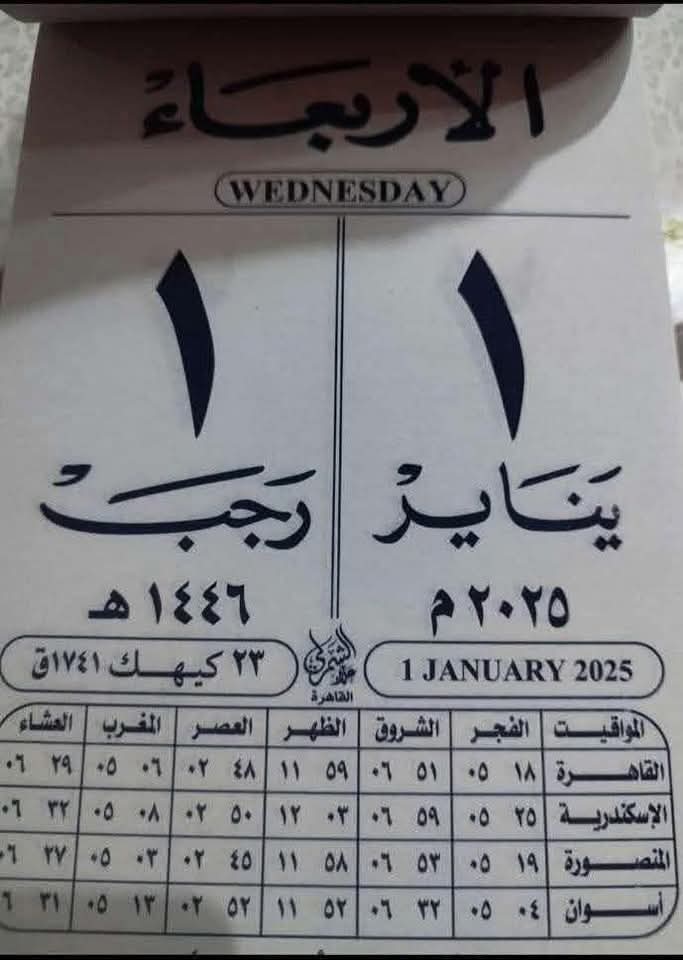 الأربعاء
WEDNESDAY
١ ١
يَنَايرْ رَجَبْ
٢٠٢٥ م ١٤٤٦ هـ
1 JANUARY 2025 الشمرلي ٢٣ كيهك ١٧٤١ق
القاهرة
المواقيت الفجر الشروق الظهر العصر المغرب العشاء
القاهرة ١٨ ٠٥ ٥١ ٠٦ ٥٩ ١١ ٤٨ ٠٢ ٠٦ ٠٥ ٢٩ ٠٦
الإسكندرية ٢٥ ٠٥ ٥٩ ٠٦ ٠٣ ١٢ ٥٠ ٠٢ ٠٨ ٠٥ ٣٢ ٠٦
المنصورة ١٩ ٠٥ ٥٣ ٠٦ ٥٨ ١١ ٤٥ ٠٢ ٠٣ ٠٥ ٢٧ ٠٦
أسوان ٠٤ ٠٥ ٣٢ ٠٦ ٥٢ ١١ ٥٢ ٠٢ ١٣ ٠٥ ٣١ ٦